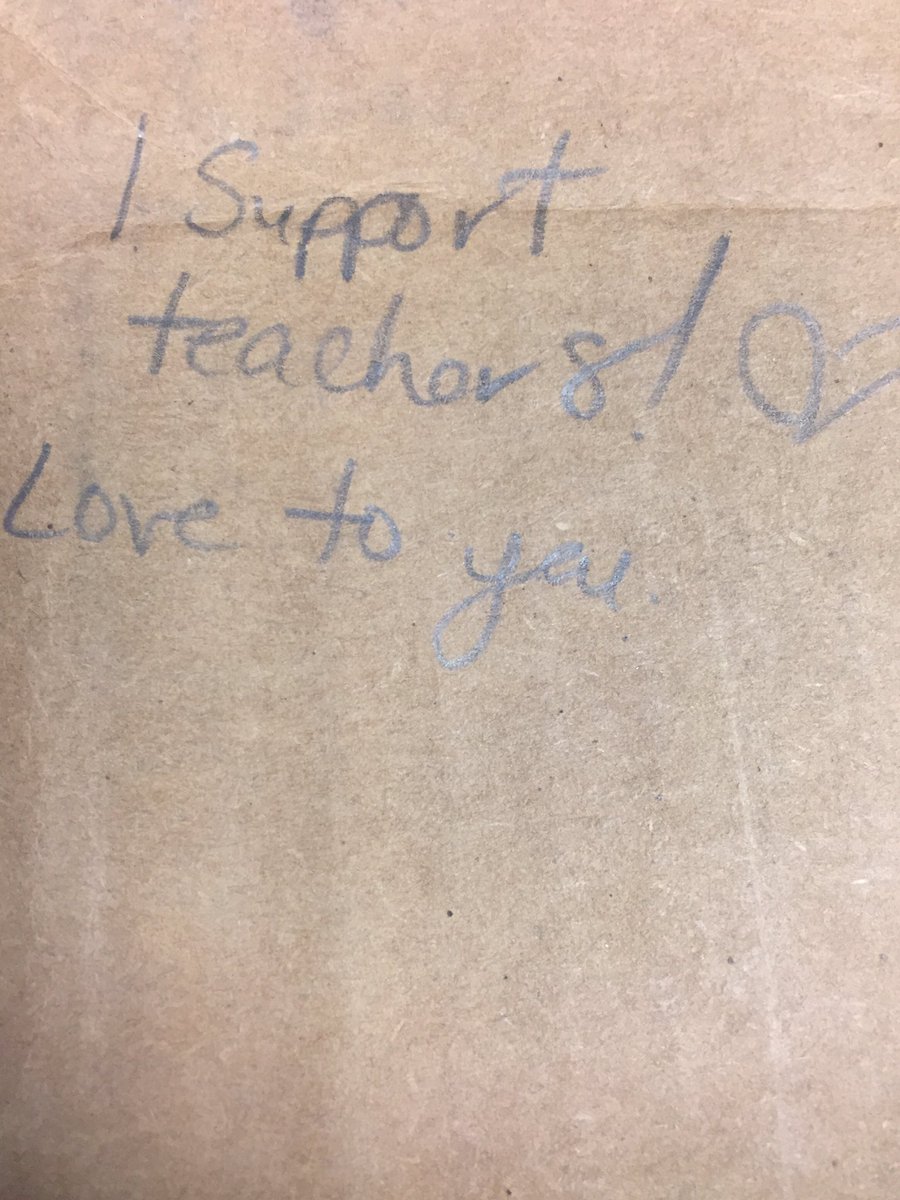 I Support
teachers! ♡
Love to you.